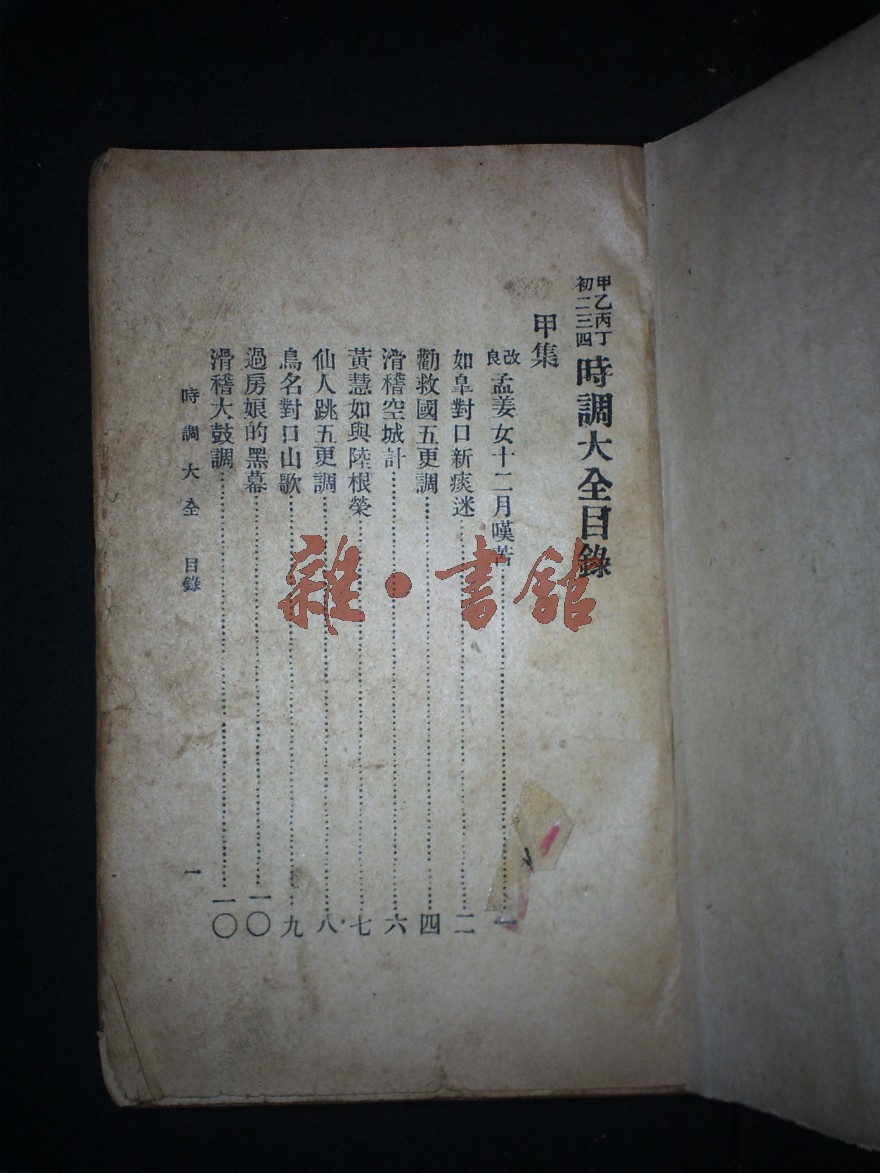 甲乙丙丁
初二三四
時調大全目錄
甲集
改良孟姜女十二月嘆苦……一
如臯對口新痰迷……二
勸救國五更調……四
滑稽空城計……六
黃慧如與陸根榮……七
仙人跳五更調……八
鳥名對口山歌……九
過房娘的黑幕……一〇
滑稽大鼓調……一〇
時調大全 目錄 一
雜·書館